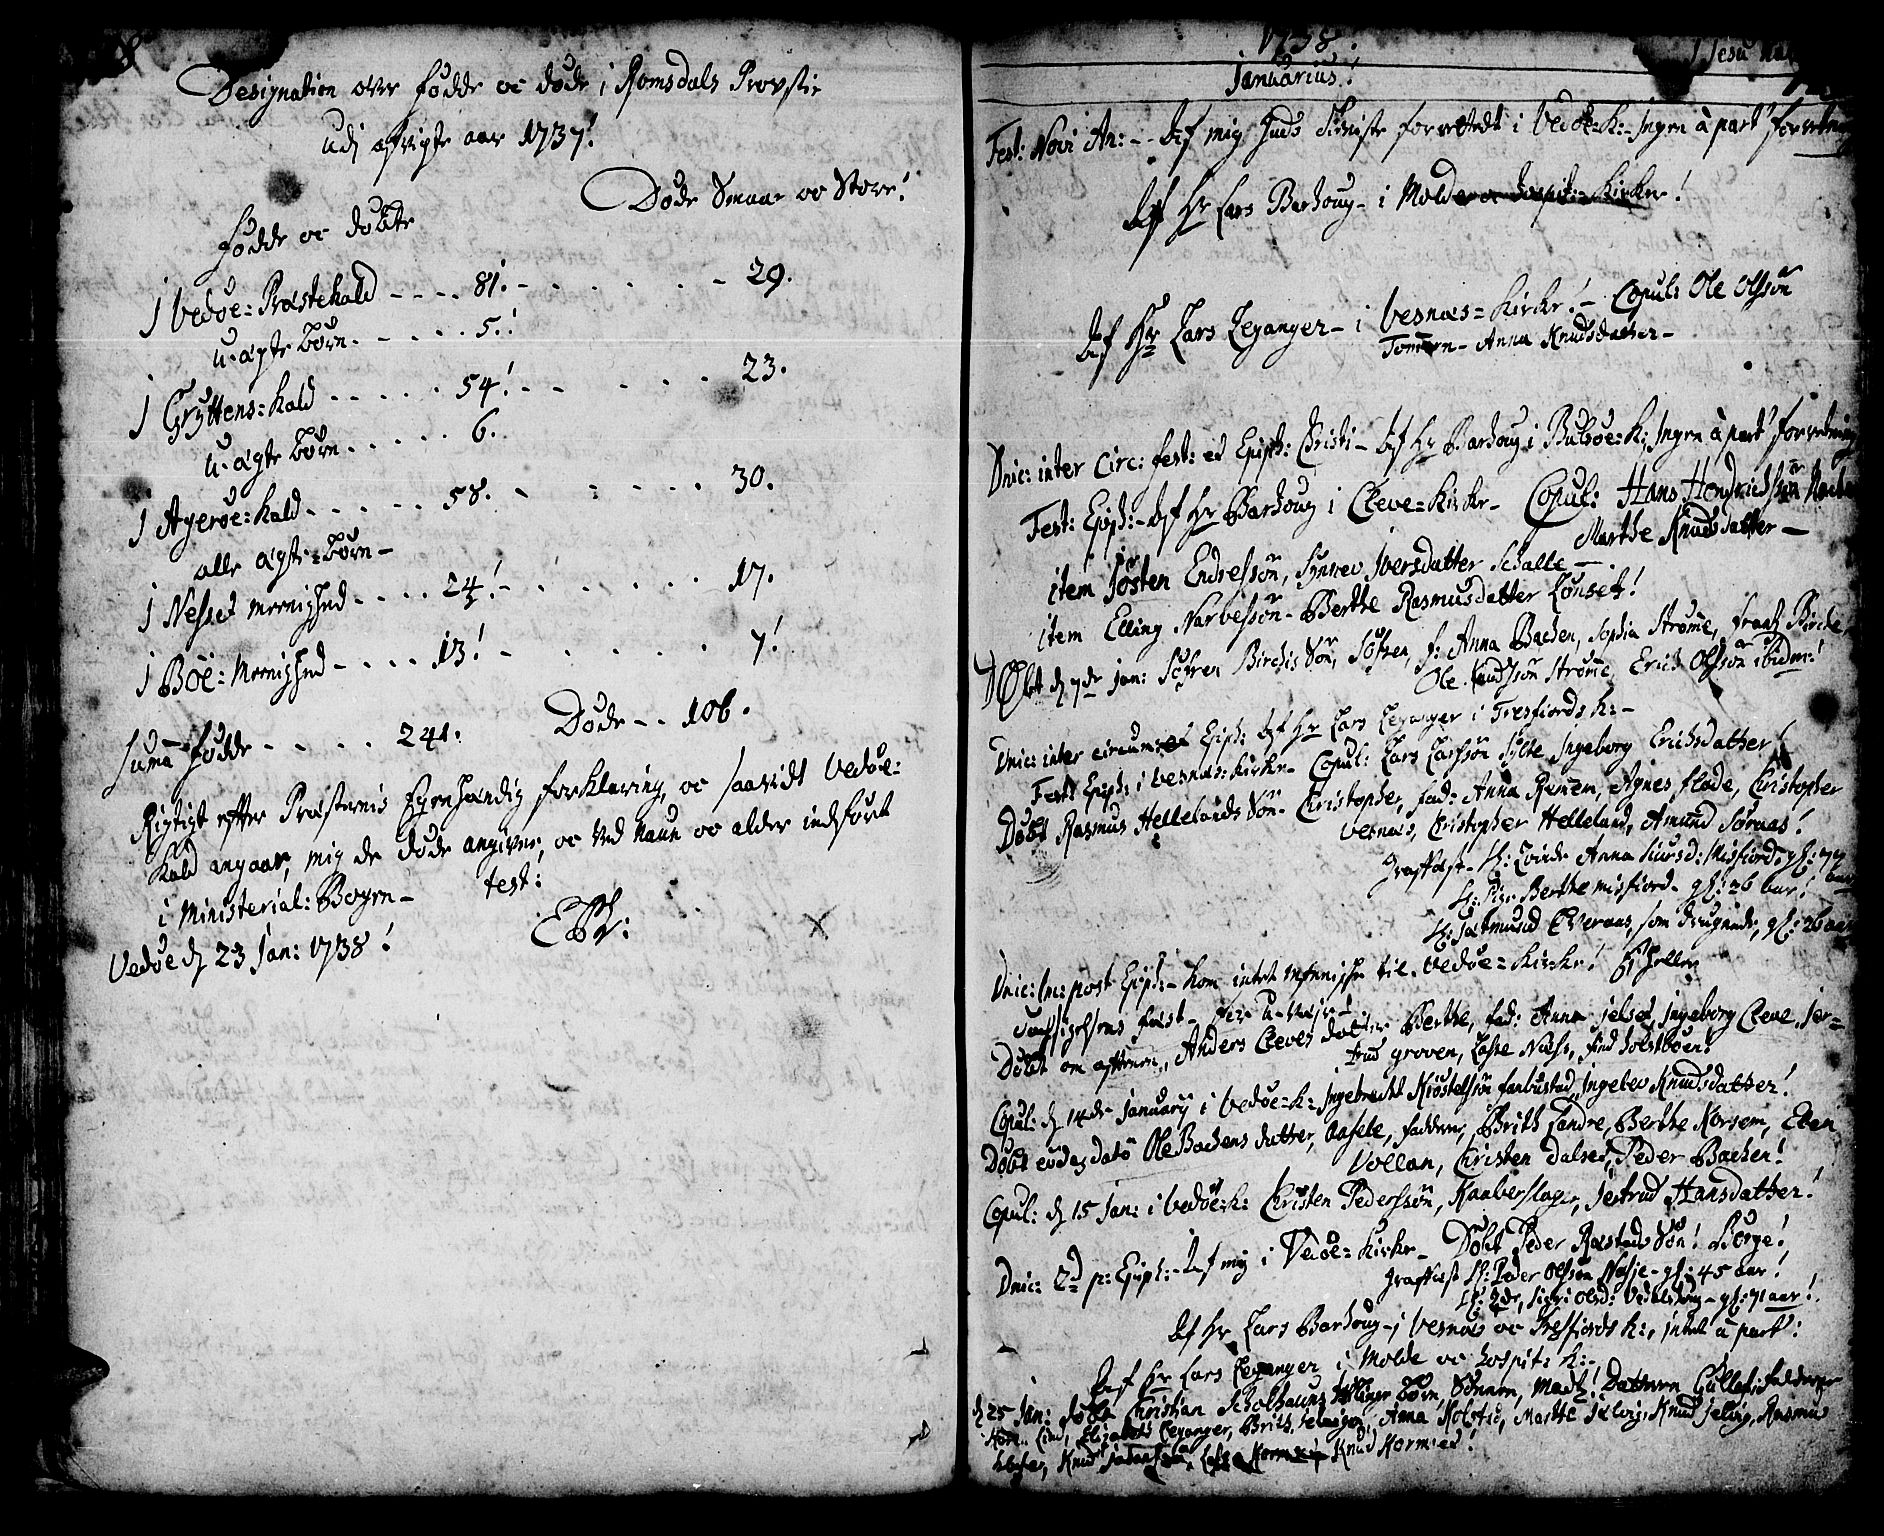 Designation over fødde oc døde i Romsdals Provstie
udj afvigte aar 1737!
Døde Smaae oc Store!
fødde oc døbte
J Vedøe: Præstekald - - - - 81. - - - - - - 29.
u-ægte børn - - - - - 5.!
J Gryttens: kald - - - - - 54! - - - - - 23.
u-ægte børn - - - - - 6.
J Agerøe: kald - - - - - - 58. - - - - - 30.
alle ægte-børn -
J Nesset meenighed - - - - 24! - - - - - - 17.
J Bøe: Meenighed - - - - 13! - - - - - - 7!
Suma fødde - - - - - 241. Døde - - 106.
Rigtigt efter Præsternis Egenhændig forklaring, oc saavidt Vedøe:
Kald angaar, mig de døde angivne, oc ved naun oc alder indført
i Ministerial: Bogen - test:
Vedøe d 23 Jan: 1738!
1738.
J Jesu
Januarius!
Fest: Novi An: - - Af mig Guds Tieniste forrettet i Vedøe: K: - Ingen à part forretning
Af Hr Lars Barhoug - i Molde oc hospit: Kirker!
Af Hr Lars Leganger - i Vesnæs = Kirke! - Copul: Ole Olssøn
Tomern - Anna Knudsdatter -
Dnic: inter Circ: fest: ed Epiph: Christi - Af Hr Barhoug i Bulsøe: K: Ingen à part forretning
Fest: Epiph: - Af Hr Barhoug i Cleve = Kirke - Copul: Hans Hendrichsøn
Marthe Knudsdatter -
item Josten Endressøn, Synnev Iversdatter Schalle - .
item Elling Narvessøn - Berthe Rasmusdatter Lønset!
Døbt d 7de Jan: Søfren Birchis Søn, Søfren, f: Anna Bachen, Sophia Strøme, frantz Birche
Ole Knudssøn Strøme, Erich Olssøn ibidem!
Dnic: inter circum: ed Epiph: Af Hr Lars Leganger i Tresfiords K: -
Fest: Epiph: i Vesnæs: Kirke - Copul: Lars Larssøn Sylte, Ingeborg Erichsdatter!
Døbt Rasmus Hellelands Søn - Christopher, fad: Anna Remem, Agnes flade, Christopher
Vesnæs, Christopher Helleland, Amund Sørnas!
Graffæst - Sl: Qvinde Anna Siursd: Misfiord, gl: 77 aar
Sl: Pige Berthe Misfiord - gl: 26 aar!
Dnic: Im: post Epiph: - kom intet Mennische til Vedøe = Kirke!
Døbt om aftenen, Anders Cleves datter Berthe, fad: Anna Jelset, Ingeborg Cleve, Jer=
trud groven, Lasse Næss, find Holsbøen!
Copul: d 14de January i Vedøe = K: Ingebrecht Kiøstelssøn farbustad, Ingelev Knudsdatter!
Døbt eodem dato Ole Bachens datter, Aasele, faddere, Brith Tandre, Berthe Korsem, Elen
Vollan, Christen Dalset, Peder Bachen!
Copul: d 15 Jan: i Vedøe: K: Christen Pederssøn, Kaaberslager, Jertrud Hansdatter!
Dnic: 2d p: Epiph: - Af mig i Vedøe = Kirke - Døbt Peder Røstads Søn! Børge!
Graffæst Sl: Peder Olssøn - gl: 45 aar!
Sl: Siri Olsd: - gl: 71 aar!
Af Hr Lars Barhoug - i Vesnæs oc Tresfiords K:, intet à part:
Af Hr Lars Leganger i Molde oc hospit: K: -
d 25 Jan: døbt Christian Scholhaugs Tvillinger børn, Sønnen, Madtz! Datteren Gullef! faddere
Elizabeth Leganger, Brith, Anna Kolstad, Marthe Jelvig, Knud Jelvig, Rasmus
Knud Kormset!